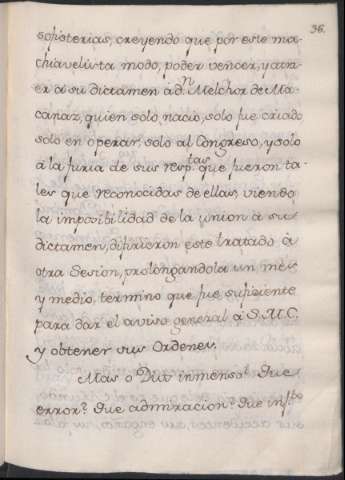 36.
sofisterias, creyendo que por este ma-
chiavelista modo, poder vencer, y atra-
er à su dictamen à dn Melchor de Ma-
canaz, quien solo, nació, solo fue criado
solo en operar, solo al Congreso, y solo
à la furia de sus resptas que fueron ta-
les que reconocidas de ellas, viendo
la imposibilidad de la union à su
dictamen, difirieron este tratado à
otra Sesion, prolongandola un mes
y medio, termino que fue suficiente
para dar el aviso general à S.M.C.
y obtener sus Ordenes.
Mas o Dios inmenso! Que
error? Que admiracion? Que